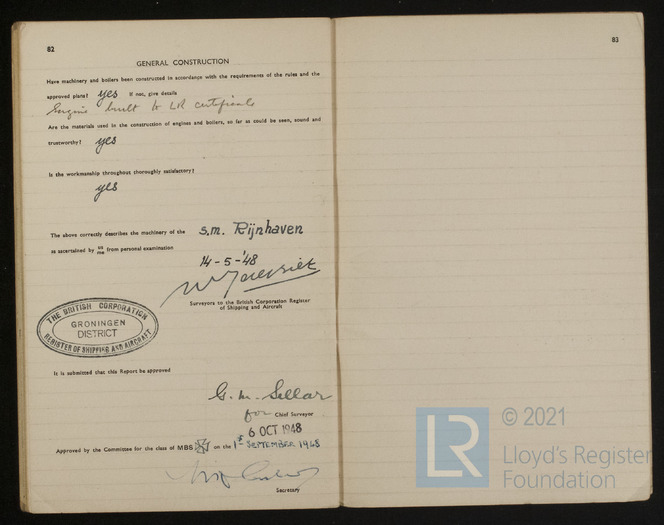 82
GENERAL CONSTRUCTION
Have machinery and boilers been constructed in accordance with the requirements of the rules and the
approved plans? yes If not, give details
Engine built to LR certificate
Are the materials used in the construction of engines and boilers, so far as could be seen, sound and
trustworthy? yes
Is the workmanship throughout thoroughly satisfactory?
yes
The above correctly describes the machinery of the s.m. Rijnhaven
as ascertained by us/me from personal examination
14-5-'48
Surveyors to the British Corporation Register
of Shipping and Aircraft
THE BRITISH CORPORATION
GRONINGEN
DISTRICT
REGISTER OF SHIPPING AND AIRCRAFT
It is submitted that this Report be approved
G. M. Sellar
for Chief Surveyor
6 OCT 1948
Approved by the Committee for the class of MBS on the 1st SEPTEMBER 1948
Secretary
83
LR
© 2021
Lloyd's Register
Foundation